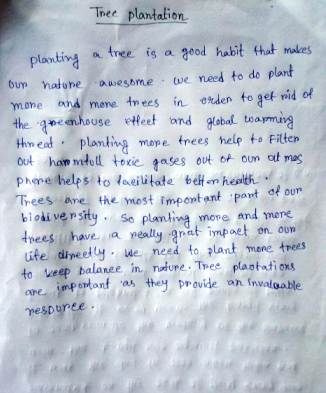 Tree plantation
planting a tree is a good habit that makes
our nature awesome. we need to do plant
more and more trees in order to get rid of
the greenhouse effect and global warming
threat. planting more trees help to Filter
out harmfull toxic gases out of our atmos
phere helps to facilitate better health.
Trees are the most important part of our
biodiversity. So planting more and more
trees have a really great impact on our
life directly. We need to plant more trees
to keep balance in nature. Tree plantations
are important as they provide an invaluable
resource.